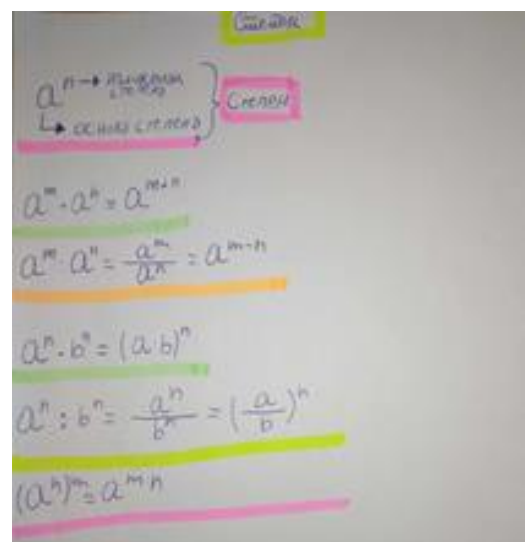 Степен
a^n → степена
↳ основа степена } Степен
a^m · a^n = a^{m+n}
a^m a^n = \frac{a^m}{a^n} = a^{m-n}
a^n · b^n = (a b)^n
a^n : b^n = \frac{a^n}{b^n} = (\frac{a}{b})^n
(a^n)^m = a^{m·n}